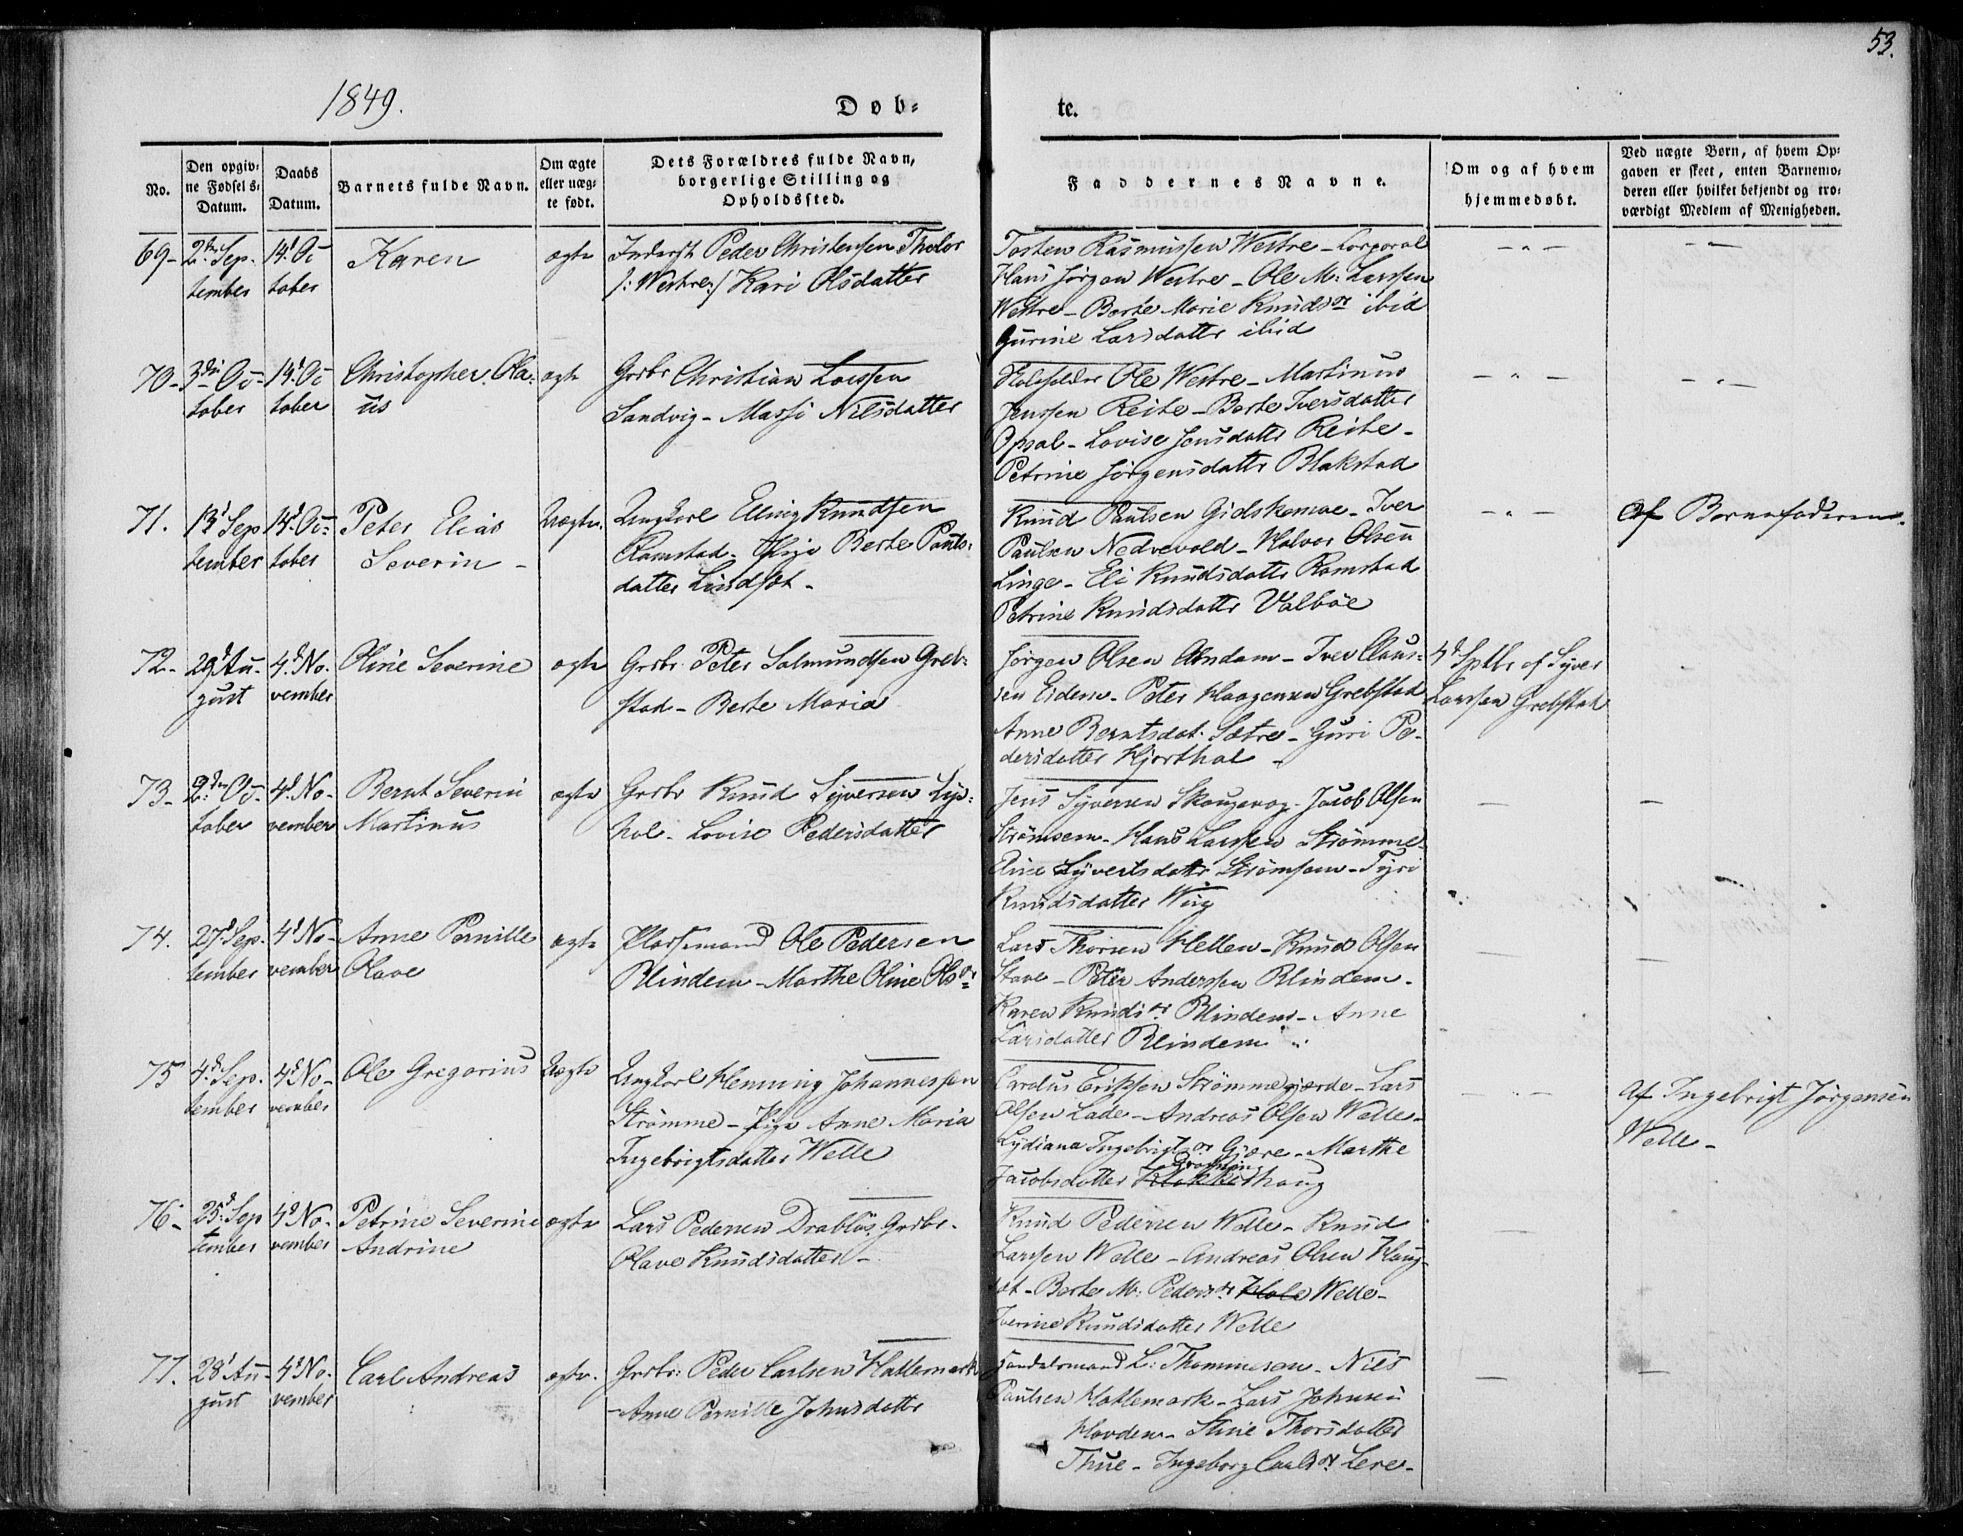 53.
1849.
Døb-
te.
No.
Den opgiv-
ne Fødsels-
Datum.
Daabs
Datum.
Barnets fulde Navn.
Om ægte
eller uæg-
te født.
Dets Forældres fulde Navn,
borgerlige Stilling og
Opholdssted.
Faddernes Navne.
Om og af hvem
hjemmedøbt.
Ved uægte Børn, af hvem Op-
gaven er skeet, enten Barnemo-
deren eller hvilket bekjendt og tro-
værdigt Medlem af Menigheden.
69-
2den Sep-
tember
14d Oc
tober
Karen
ægte
Inderst Peder Christensen
/: Westre :/ Kari Olsdatter
Torsten Rasmussen Westre - Corporal
Hans Jørgen Westre - Ole M: Larssen
Westre - Berte Marie Knudsdr ibid
Gurine Larsdatter ibid
70-
3die Oc-
tober
14d Oc
tober
Christopher Ola-
us
ægte
Grbr Christian Larssen
Sandvig - Massi Nilsdatter
Skoleholder Ole Westre - Martinus
Jenssen Reite - Berte Iversdatter
Opsal - Lovise Jensdatter Reite -
Petrine Jørgensdatter Blakstad
71.
13d Sep
tember
14d Oc-
tober
Peter Elias
Severin -
Uægte
Ungkarl Elling Knudsen
Ramstad - Pige Berte Pauls-
datter Lindset -
Knud Paulsen Gidskemoe - Iver
Paulsen Nedrevold - Halvor Olsen
Linge - Eli Knudsdatter Ramstad
Petrine Knudsdatter Valbøe
Af Barnefaderen.
72-
29d Au-
gust
4d No-
vember
Oline Severine
ægte
Grbr. Peter Salmundsen Greb-
stad - Berte Maria
Jørgen Olsen Amdam - Iver Claus-
sen Eidem - Peter Haagensen Grebstad
Anne Berntsdat. Sætre - Guri Pe-
dersdatter Hjorthol -
4d Sptbr af Syver
Larssen Grebstad
73-
2den Oc-
tober
4d No-
vember
Bernt Severin
Martinus
ægte
Grbr Knud Syversen Lys-
hol - Lovise Pedersdatter
Jens Syversen Skougevog - Jacob Olsen
Strømsem - Hans Larssen Strømme
Ane Syvertsdatter Strømsem - Tyri
Knudsdatter Wiig
74.
27d Sep-
tember
4d No-
vember
Anne Pernille
Olave
ægte
Pladsemand Ole Pedersen
Blindem - Marthe Oline Olsdr
Lars Thorsen Hellen - Knud Olsen
Stave - Peter Anderssen Blindem -
Karen Knudsdr Blindem - Anne
Larsdatter Blindem
75
4d Sep-
tember
4d No-
vember
Ole Gregorius
Uægte
Ungkarl Henning Johannessen
Strømme - Pige Anne Maria
Ingebrigtsdatter Welle
Carolus Erikssen Strømmegjærde - Lars
Olsen Lade - Andreas Olsen Welle -
Lydiana Ingebrigtsdr Gjære - Marthe
Jacobsdatter
haug
Af Ingebrigt Jørgensen
Welle -
76-
25d Sep
tember
4d No-
vember
Petrine Severine
Andrine
ægte
Lars Pedersen Drabløs Grbr.
Olave Knudsdatter -
Knud Pedersen Welle - Knud
Larssen Welle - Andreas Olsen Haug-
set - Berte M: Pedersdr Hole Welle -
Iverine Knudsdatter Welle
77.
28d Au-
gust
4d No-
vember
Carl Andreas
ægte.
Grbr: Peder Carlsen Hatlemark
- Anne Pernille Johnsdatter
Handelsmand L: Thommesen - Nils
Paulsen Hatlemark - Lars Johnsen
Hovdem - Stine Thorsdatter
Thue - Ingeborg Carlsdr Lere -